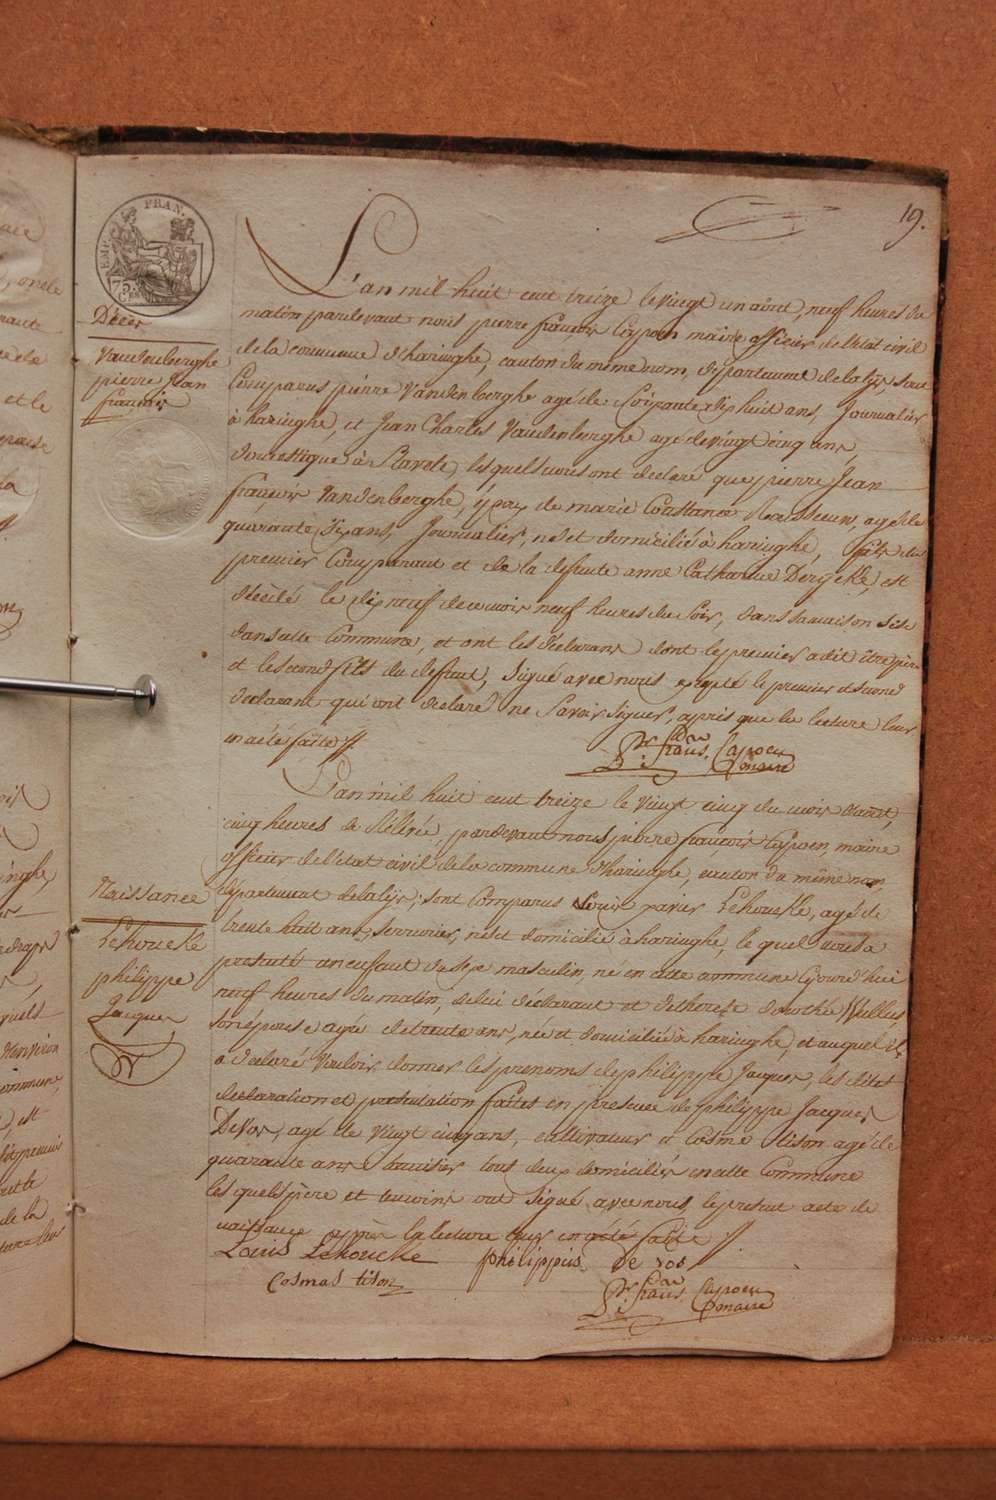 19.
EMP. FRAN.
75.
Décès
Vandenberghe
pierre Jean
françois
L'an mil huit cent treize le vingt un aôut, neuf heures du
matin pardevant nous pierre françois Capoen maire officier de l'etat civil
de la commune d'haringhe, canton du même nom, département de la lys, sont
Comparus pierre Vandenberghe agé de soixante dix huit ans, Journalier
à haringhe, et Jean Charles Vandenberghe agé de vingt cinq ans,
domestique à Stavele, lesquels nous ont déclaré que pierre Jean
françois Vandenberghe, époux de marie Constance, agé de
quarante six ans, Journalier, né et domicilié à haringhe, fils du
premier Comparant et de la defunte anne Catharine Derycke, est
décédé le dix neuf de ce mois neuf heures du soir, dans sa maison sise
dans cette Commune, et ont les déclarans dont le premier a dit être père
et le second fils du defunt, signé avec nous excepté le premier et second
déclarant qui ont declaré ne savoir signer, après que la lecture leur
en a été faite //.
Pr. frans. Capoen
maire
Naissance
Lehoucke
philippe
Jacques
L'an mil huit cent treize le vingt cinq du mois d'aout,
cinq heures de relevée, pardevant nous pierre françois Capoen, maire
officier de l'état civil de la commune d'haringhe, canton du même nom,
département de la lys; sont Comparus Louis xavier Lehoucke, agé de
trente huit ans, serrurier, né et domicilié à haringhe, le quel nous a
presenté un enfant du sexe masculin, né en cette commune ce jourd'hui
neuf heures du matin, de lui déclarant et de thereze dorothé Wullus
son épouse agée de trente ans, née et domiciliée à haringhe, et auquel il
a déclaré Vouloir donner les prenoms de philippe Jacques, les dites
declaration et presentation faites en presence de philippe Jacques
De Vos, agé de vingt cinq ans, cultivateur et Cosme tison agé de
quarante ans tous deux domiciliés en cette Commune
les quels père et temoins ont signé avec nous le present acte de
naissance après la lecture leur en a été faite //
Louis Lehoucke philippus de vos
Cosmas tison
Pr. frans. Capoen
maire